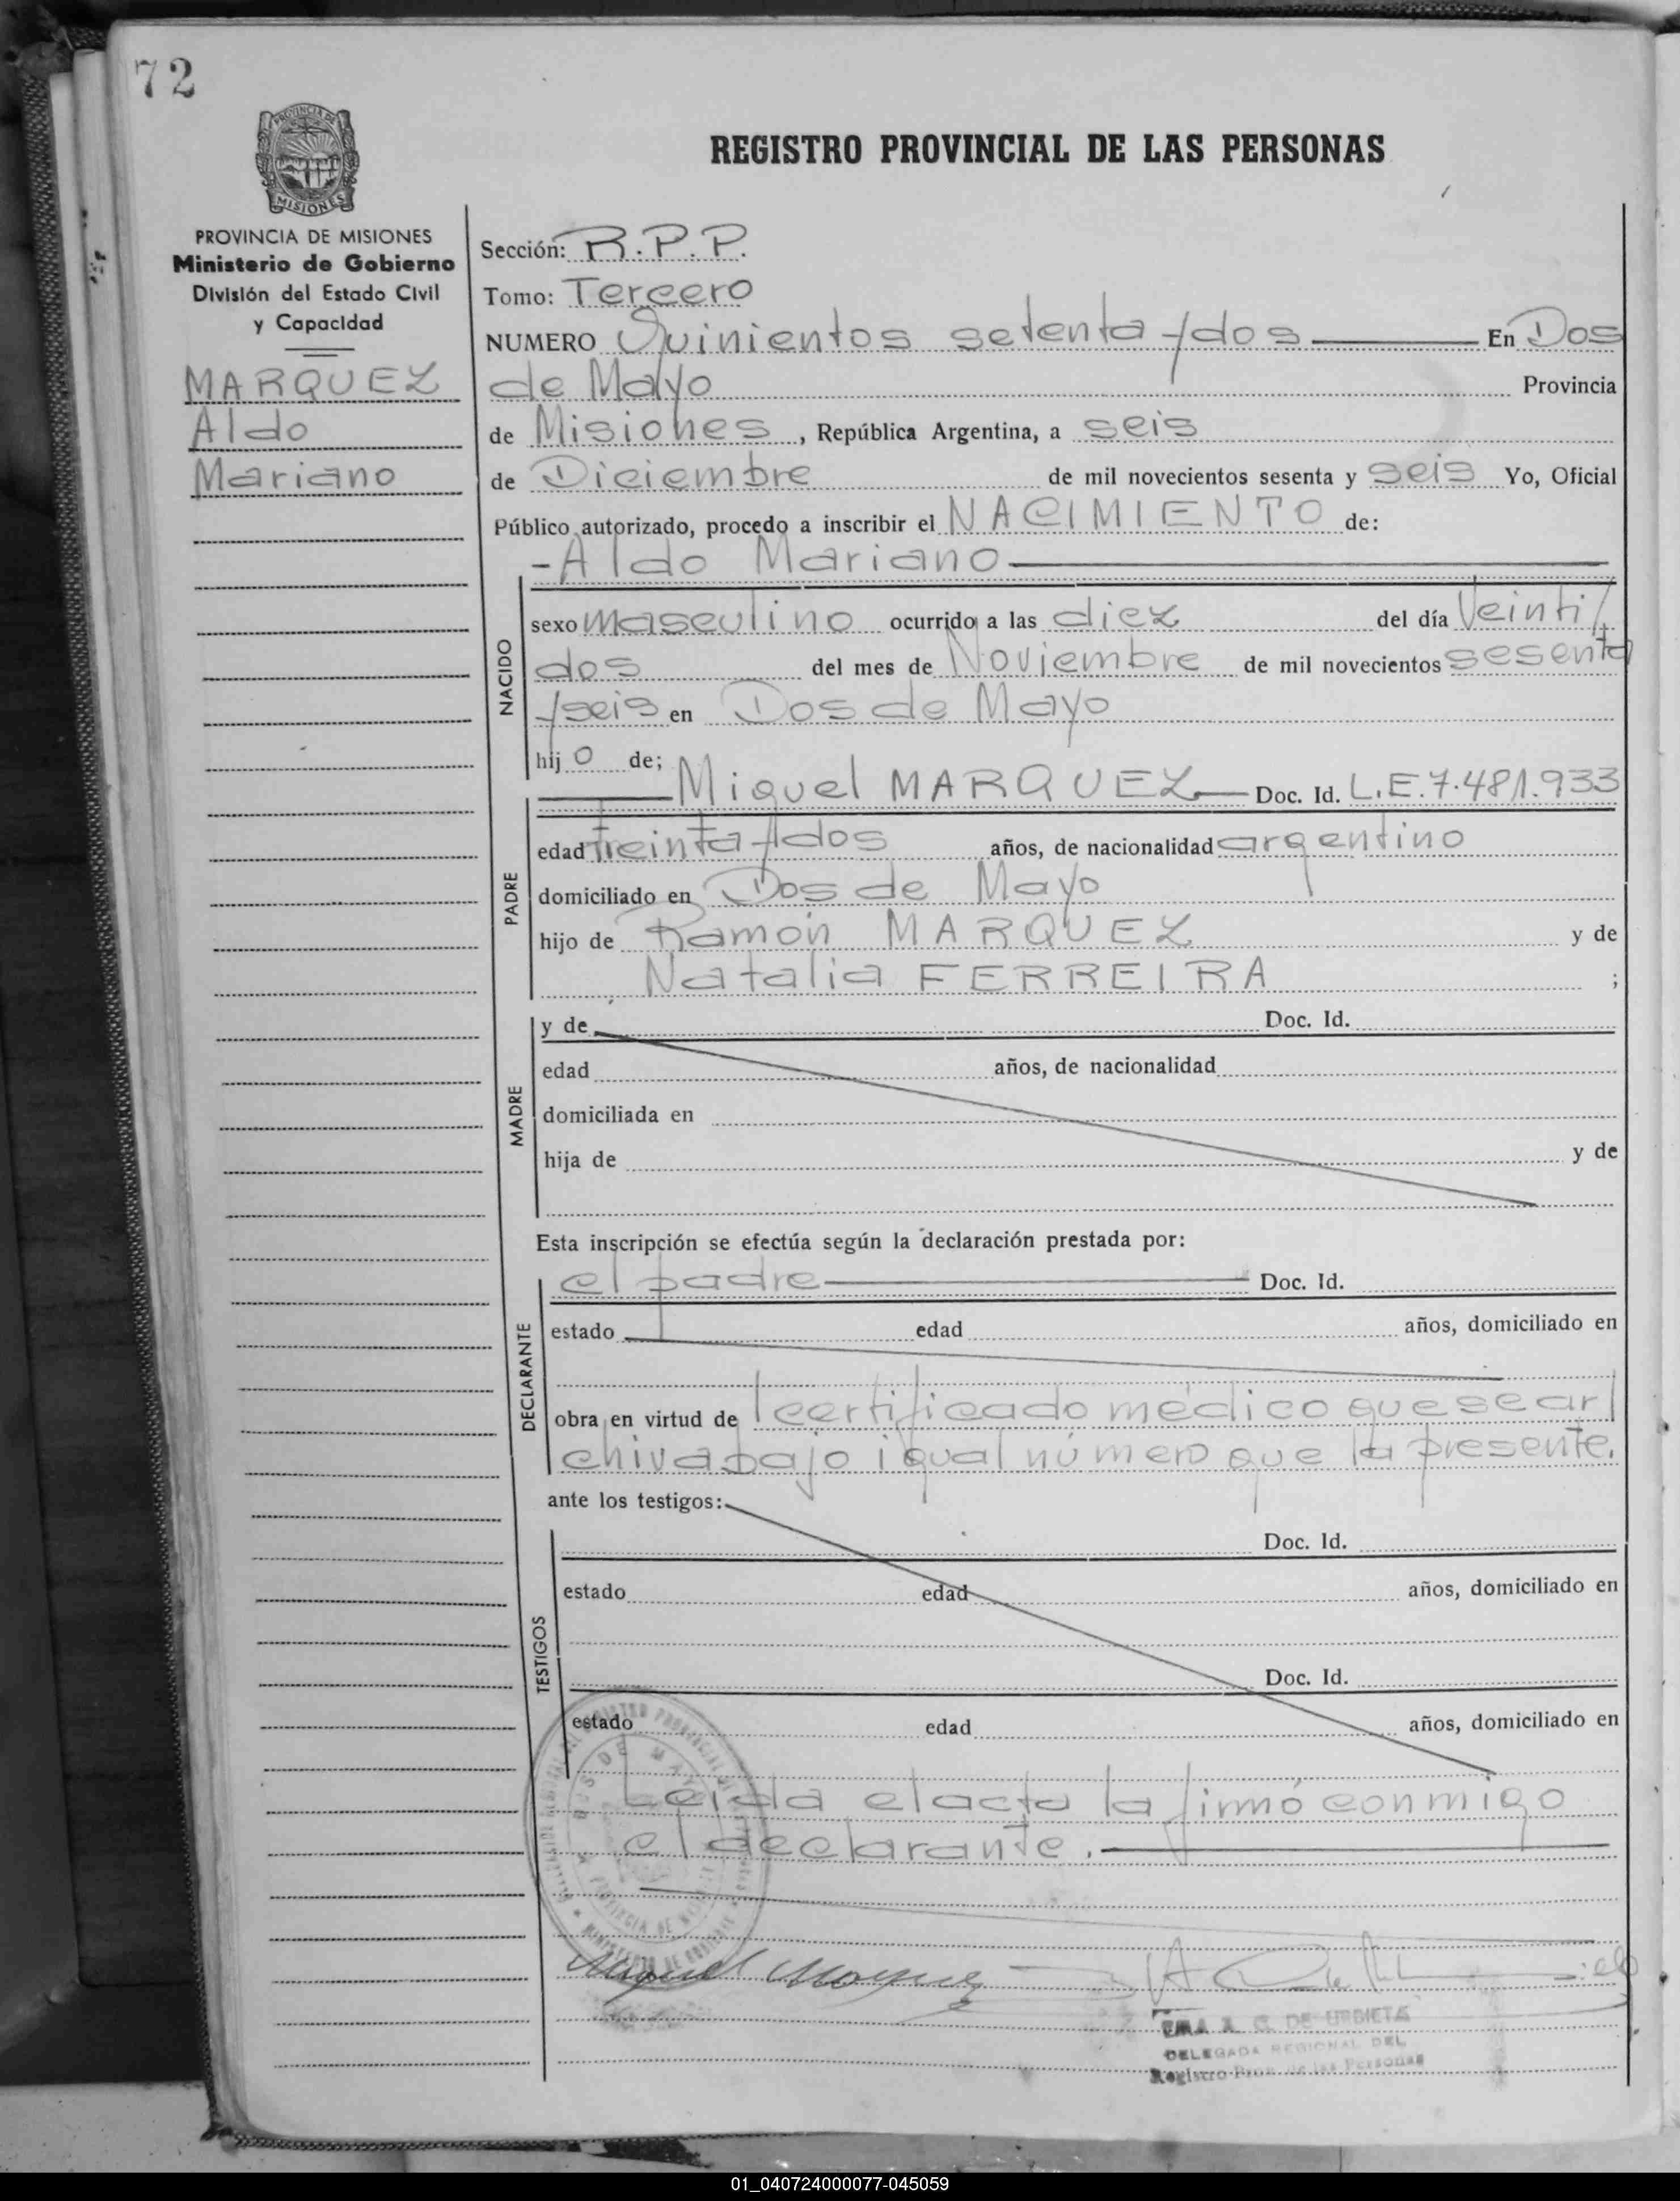 72
PROVINCIA DE
MISIONES
REGISTRO PROVINCIAL DE LAS PERSONAS
PROVINCIA DE MISIONES
Ministerio de Gobierno
División del Estado Civil
y Capacidad
MARQUEZ
Aldo
Mariano
Sección: R.P.P.
Tomo: Tercero
NUMERO Quinientos setenta y dos En Dos
de Mayo Provincia
de Misiones, República Argentina, a seis
de Diciembre de mil novecientos sesenta y seis Yo, Oficial
Público autorizado, procedo a inscribir el NACIMIENTO de:
-Aldo Mariano
NACIDO
sexo masculino ocurrido a las diez del día Veinti/
dos del mes de Noviembre de mil novecientos sesenta
y seis en Dos de Mayo
hijo de;
PADRE
Miguel MARQUEZ Doc. Id. L.E.7.481.933
edad treinta y dos años, de nacionalidad argentino
domiciliado en Dos de Mayo
hijo de Ramón MARQUEZ y de
Natalia FERREIRA ;
MADRE
y de Doc. Id.
edad años, de nacionalidad
domiciliada en
hija de y de
Esta inscripción se efectúa según la declaración prestada por:
DECLARANTE
el padre Doc. Id.
estado edad años, domiciliado en
obra en virtud de certificado médico que se ar/
chiva bajo igual número que la presente.
ante los testigos:
TESTIGOS
Doc. Id.
estado edad años, domiciliado en
Doc. Id.
estado edad años, domiciliado en
Leída el acta la firmó conmigo
el declarante.
DOS DE MAYO
PROVINCIA DE
Miguel Marquez
DE URBIETA
DELEGADA REGIONAL DEL
Registro Prov. de las Personas
01_040724000077-045059